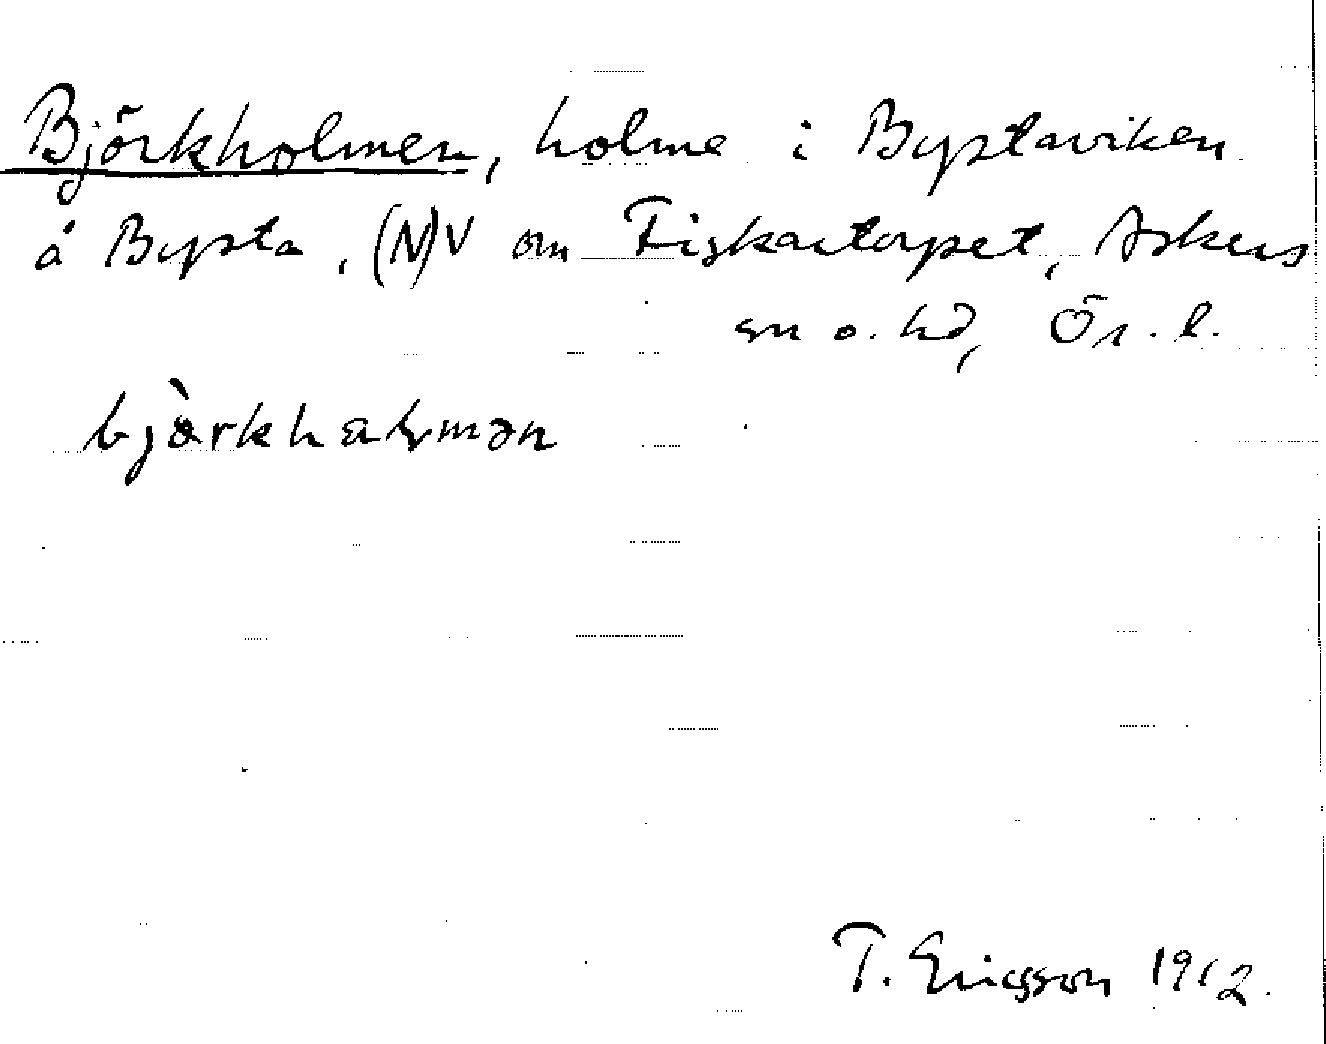 Björkholmen, holme i Bystaviken
å Bysta, (N)V om Fiskartorpet, Askers
sn o. hd, Ör. l.
T. Ericsson 1912.